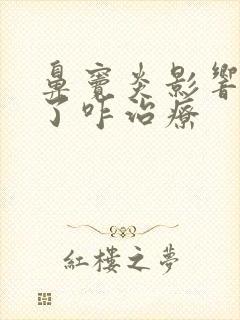 鼻窦炎影响
了咋治疗
紅樓之夢